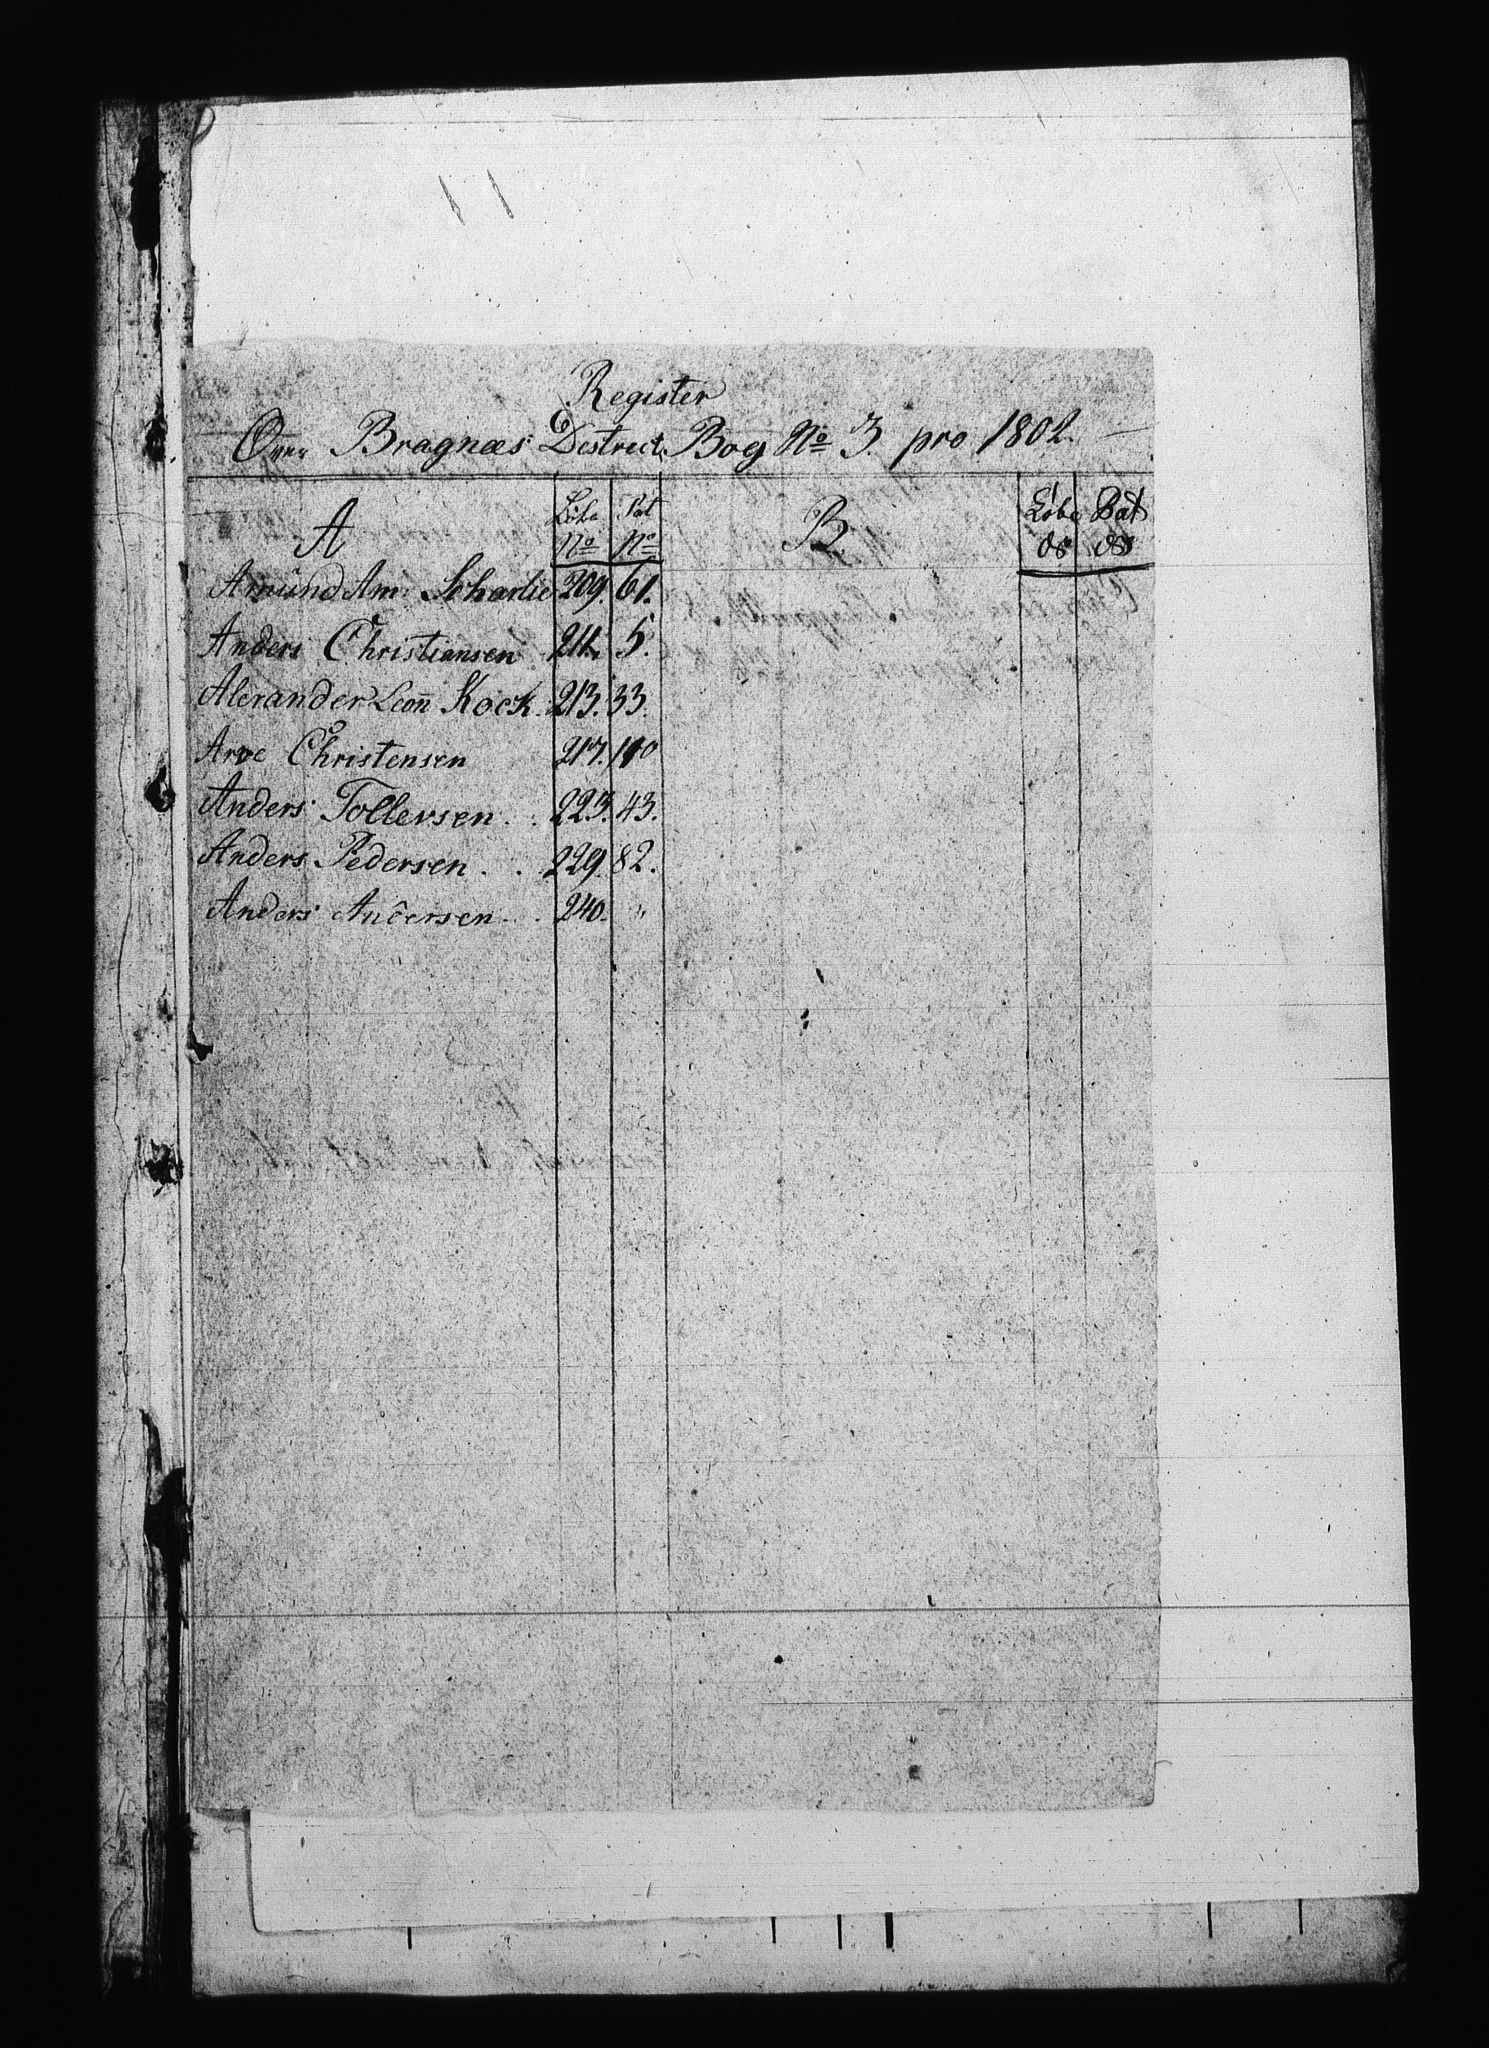 Register
Over Bragnæs District, Bog No 3. pro 1802.
A Löbe No Pat No B Löbe Pat
Amund Am: Scharlie 209. 61.
Anders Christiansen 211. 5.
Alexander Leoñ Kock. 213. 33.
Arve Christensen 217. 110
Anders Tollersen . . 223. 43.
Anders Pedersen . . 229. 82.
Anders Andersen . . 240. "